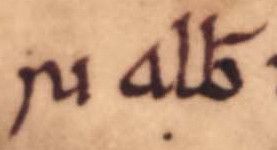 ri alb̄